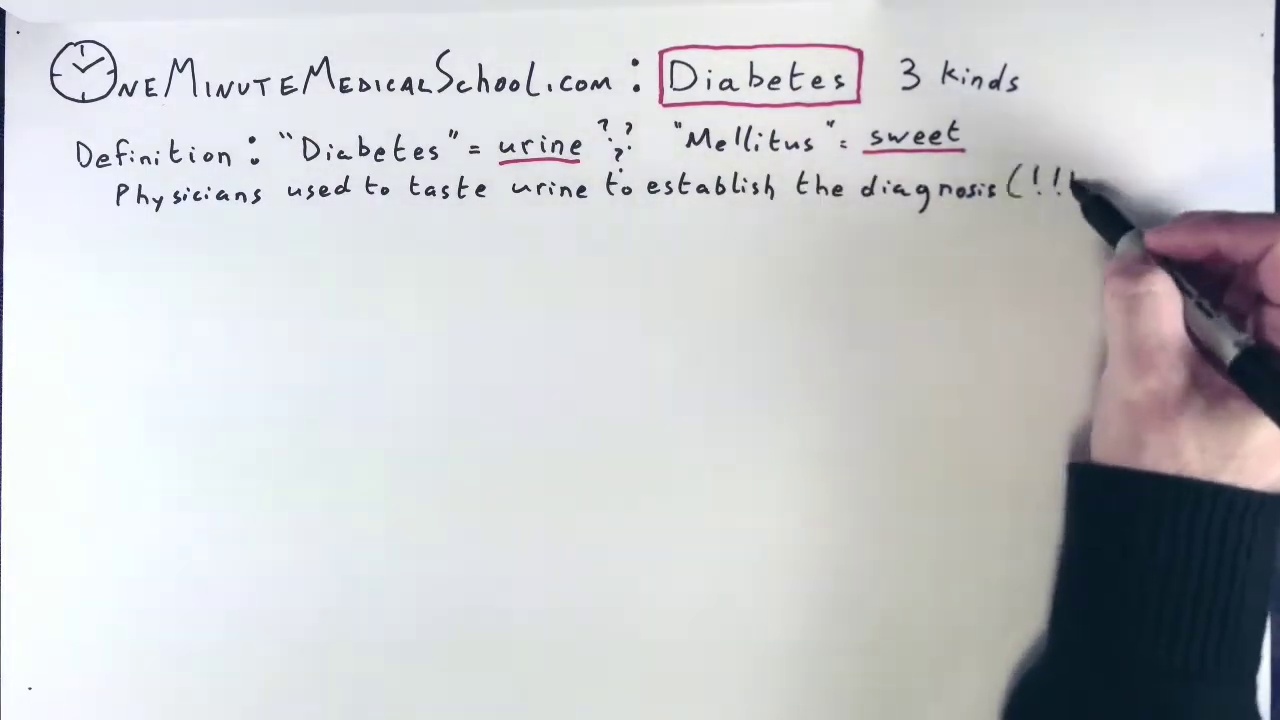 OneMinuteMedicalSchool.com : Diabetes 3 kinds
Definition : "Diabetes" = urine ? ? ? "Mellitus" = sweet
Physicians used to taste urine to establish the diagnosis (!!